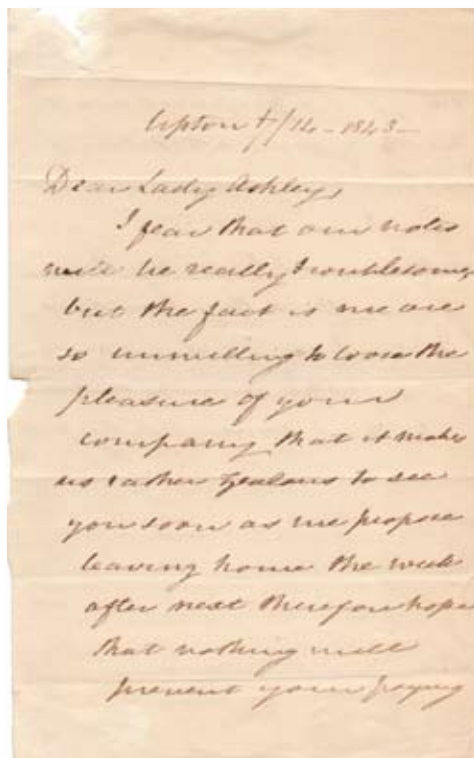 Upton 7/14 - 1843 -
Dear Lady Ashley,
I fear that our notes
will be really troublesome
but the fact is we are
so unwilling to loose the
pleasure of your
company that it makes
us rather zealous to see
you soon as we propose
leaving home the week
after next therefore hope
that nothing will
prevent your paying